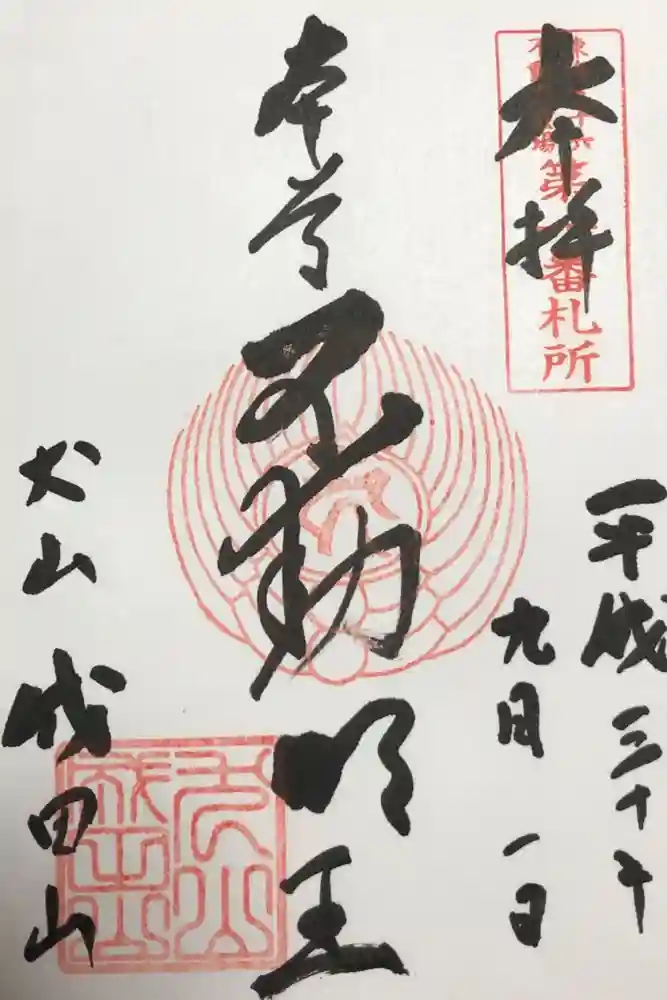 奉拝
番札所
平成三十年
九月一日
本尊
不動明王
犬山成田山
犬山
成田山